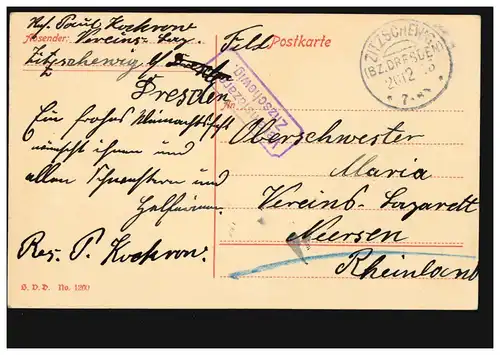 Paul Kockrow
Absender: Vereins-Laz.
Zitzschewig b/
Dresden
Feld Postkarte
ZITZSCHEWIG
(BZ. DRESDEN)
Zitzschewig
Ein frohes Weihnachtsfest
wünscht ihnen und
allen Schwestern und
Helferinnen
Res. P. Kockrow.
Oberschwester
Maria
Vereins-Lazarett
Neersen
Rheinland
S. D. D. No. 1200